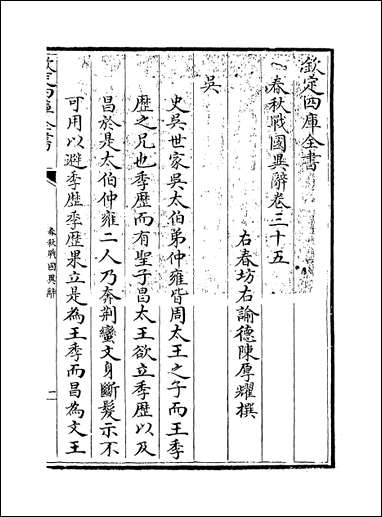 欽定四庫全書
春秋戰國異辭卷三十五
右春坊右諭德陳厚耀撰
吳
史吳世家吳太伯弟仲雍皆周太王之子而王季
歴之兄也季歴而有聖子昌太王欲立季歴以及
昌於是太伯仲雍二人乃奔荆蠻文身斷髪示不
可用以避季歴季歴果立是為王季而昌為文王
欽定四庫全書
春秋戰國異辭